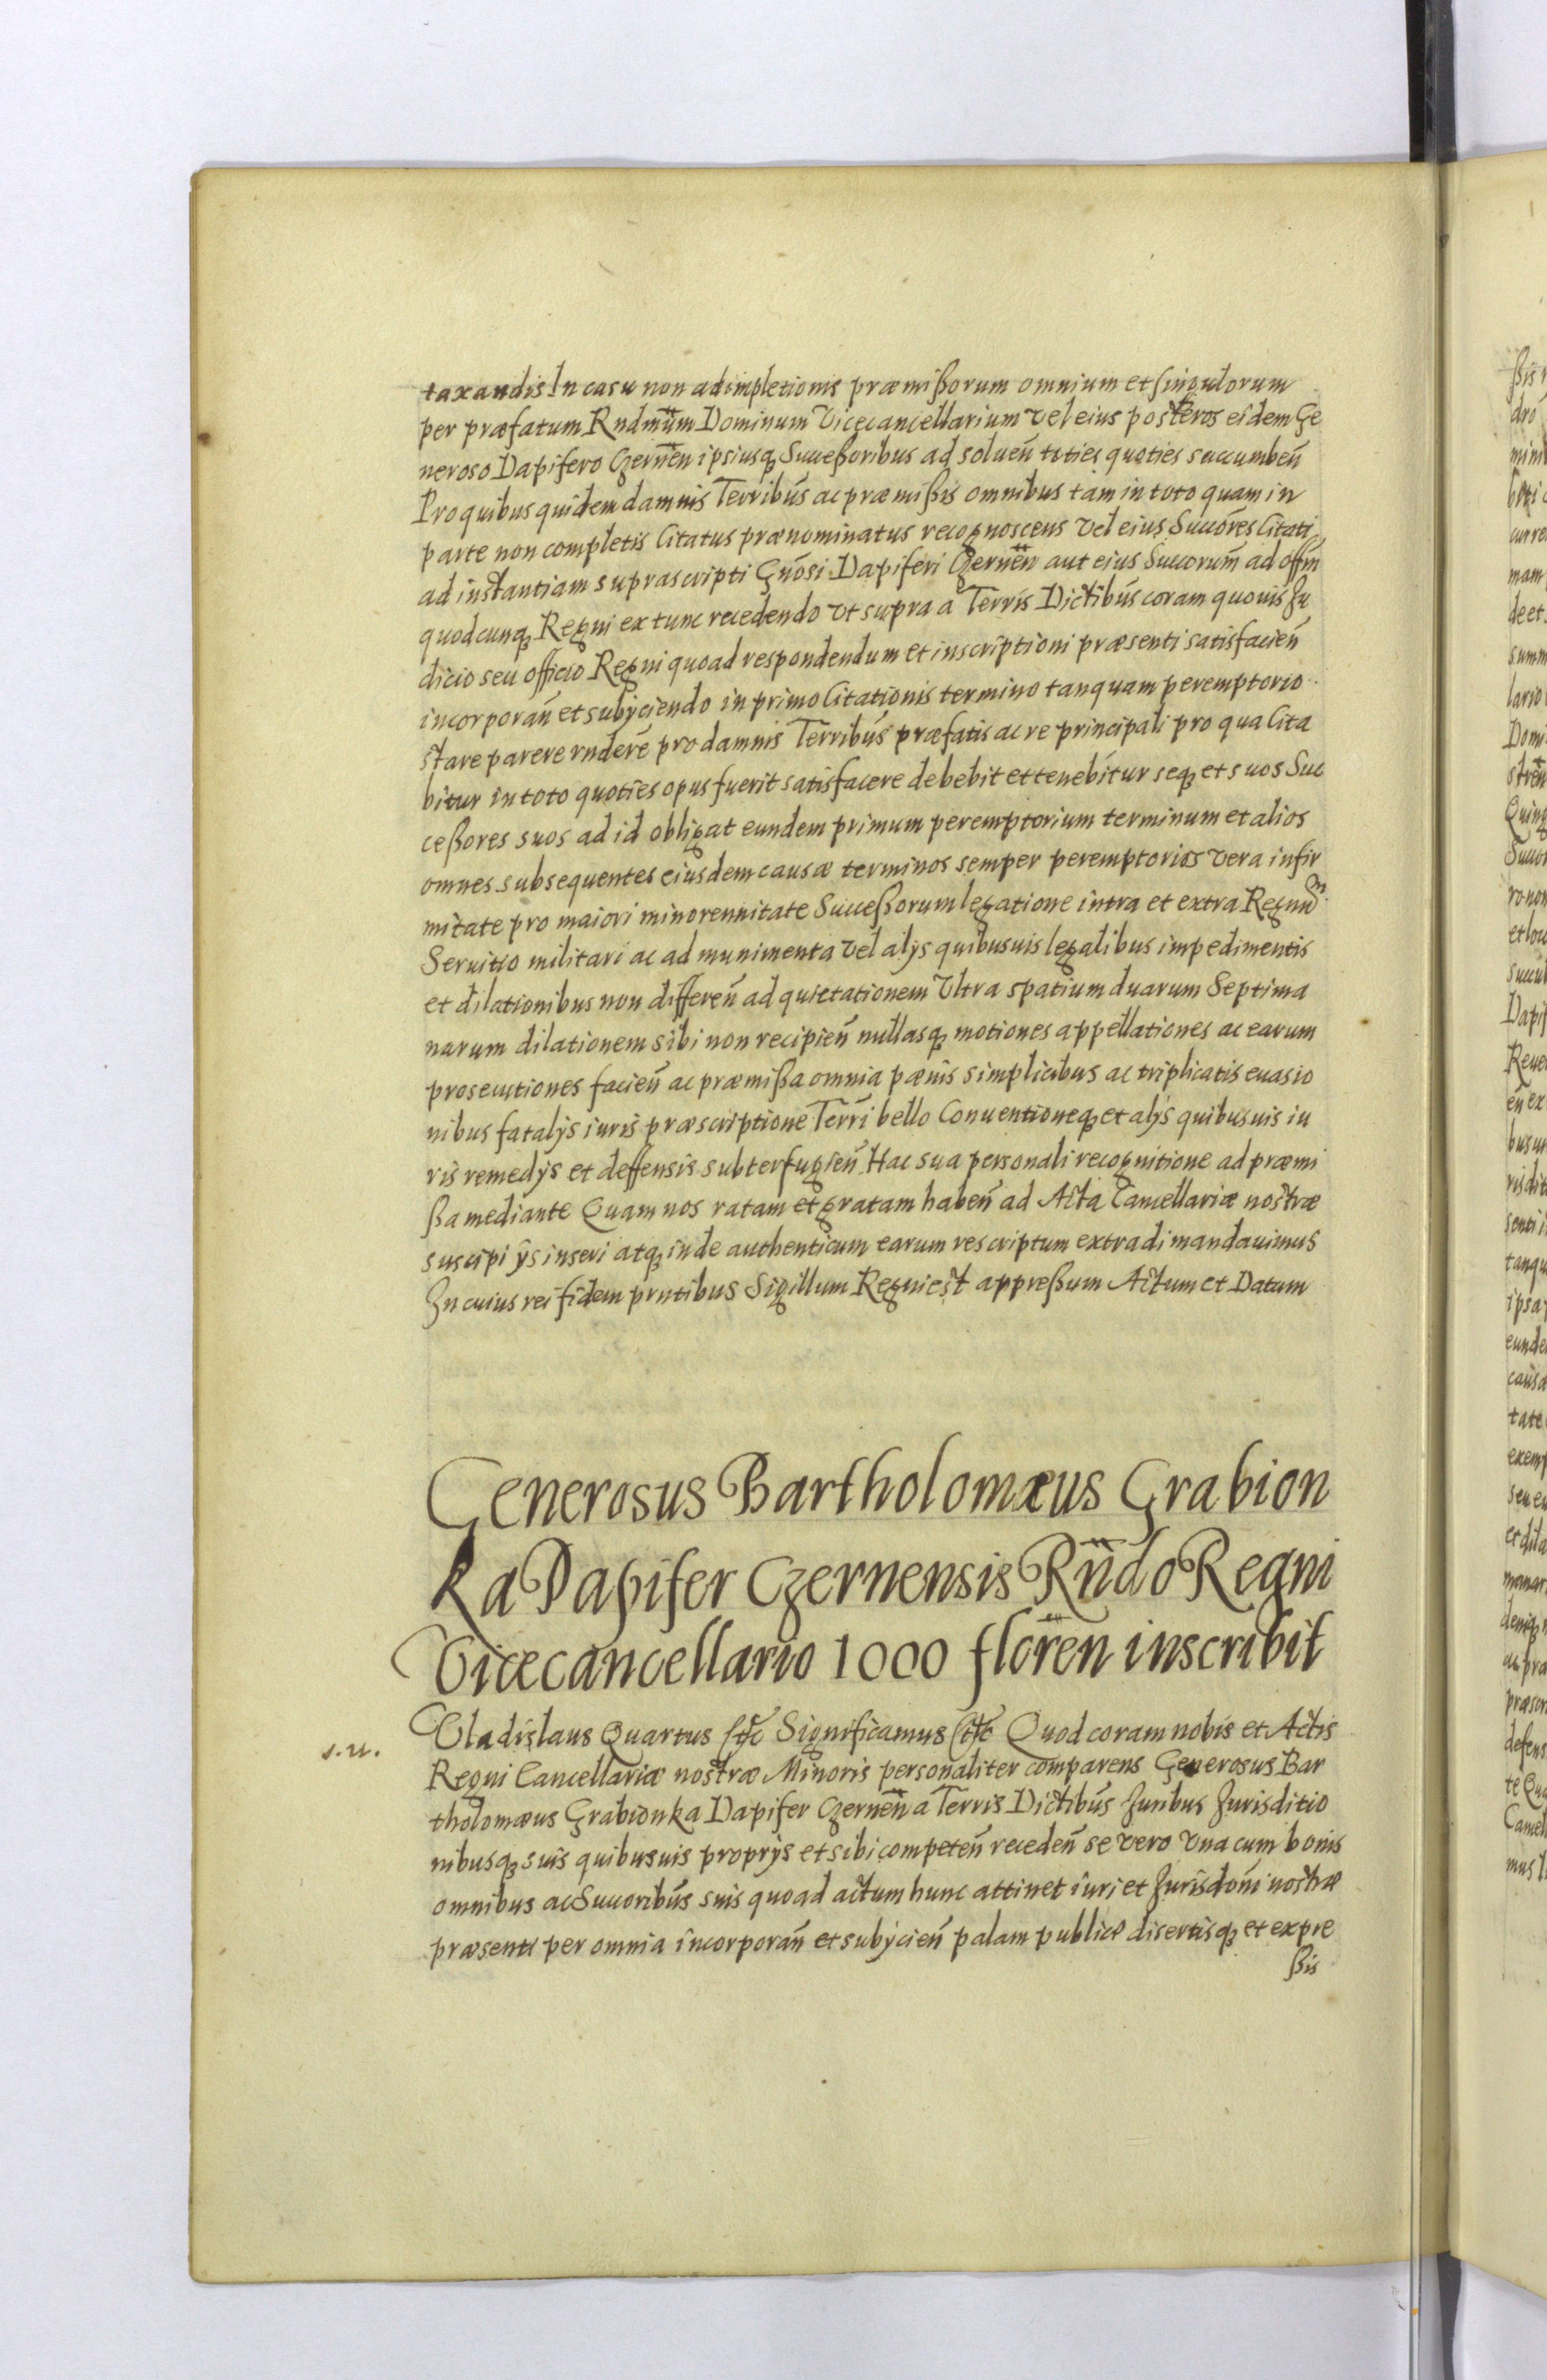 taxandis In casu non adimpletionis præmißorum omnium et singulorum
per præfatum Rndmum Dominum Vicecancellarium vel eius posteros eidem Ge
neroso Dapifero Czerneñ ipsiusq Succeßoribus ad soluen̄ toties quoties succumben̄
Pro quibus quidem damnis Terribus̄ ac præmißis omnibus tam in toto quam in
parte non completis Citatus prænominatus recognoscens vel eius Succōres Citati
ad instantiam suprascripti Gnōsi Dapiferi Czerneñ aut eius Succorum̄ ad offm̄
quodcunq Regni ex tunc recedendo vt supra a Terris Dictibus̄ coram quouis Ju
dicio seu officio Regni quoad respondendum et inscriptioni præsenti satisfacien̄
incorporan̄ et subÿciendo in primo Citationis termino tanquam peremptorio
stare parere rnderē pro damnis Terribus̄ præfatis ac re principali pro qua Cita
bitur in toto quoties opus fuerit satisfacere debebit et tenebitur seq et suos Suc
ceßores suos ad id obligat eundem primum peremptorium terminum et alios
omnes subsequentes eiusdem causæ terminos semper peremptorios vera infir
mitate pro maiori minorennitate Succeßorum legatione intra et extra Regnum
Seruitio militari ac ad munimenta vel alÿs quibusuis legalibus impedimentis
et dilationibus non differen̄ ad quietationem Vltra spatium duarum Septima
narum dilationem sibi non recipien̄ nullasq motiones appellationes ac earum
prosecutiones facien̄ ac præmißa omnia pænis simplicibus ac triplicatis euasio
nibus fatalÿs iuris præscriptione Terrī bello Conuentioneq et alÿs quibusuis iu
ris remedÿs et deffensis subterfugien̄ Hac sua personali recognitione ad præmi
ßa mediante Quam nos ratam et gratam haben̄ ad Acta Cancellariæ nostræ
suscipi ÿs inseri atq inde authenticum earum rescriptum extradi mandauimus
In cuius rei fidem prntibus Sigillum Regni est appreßum Actum et Datum
Generosus Bartholomæus Grabion
ka Dapifer Czernensis Rn̄do Regni
Vicecancellario 1000 floren̄ inscribit
s.n.
Vladislaus Quartus etc Significamus etc Quod coram nobis et Actis
Regni Cancellariæ nostræ Minoris personaliter comparens Generosus Bar
tholomæus Grabionka Dapifer Czerneñ a Terris Dictibus̄ Juribus Jurisditio
nibusq suis quibusuis proprÿs et sibi competen̄ receden̄ se vero vna cum bonis
omnibus ac Succoribus̄ suis quoad actum hunc attinet iuri et Jurisdoni̅ nostræ
præsenti per omnia incorporan̄ et subÿcien̄ palam publice disertisq et expre
ßis